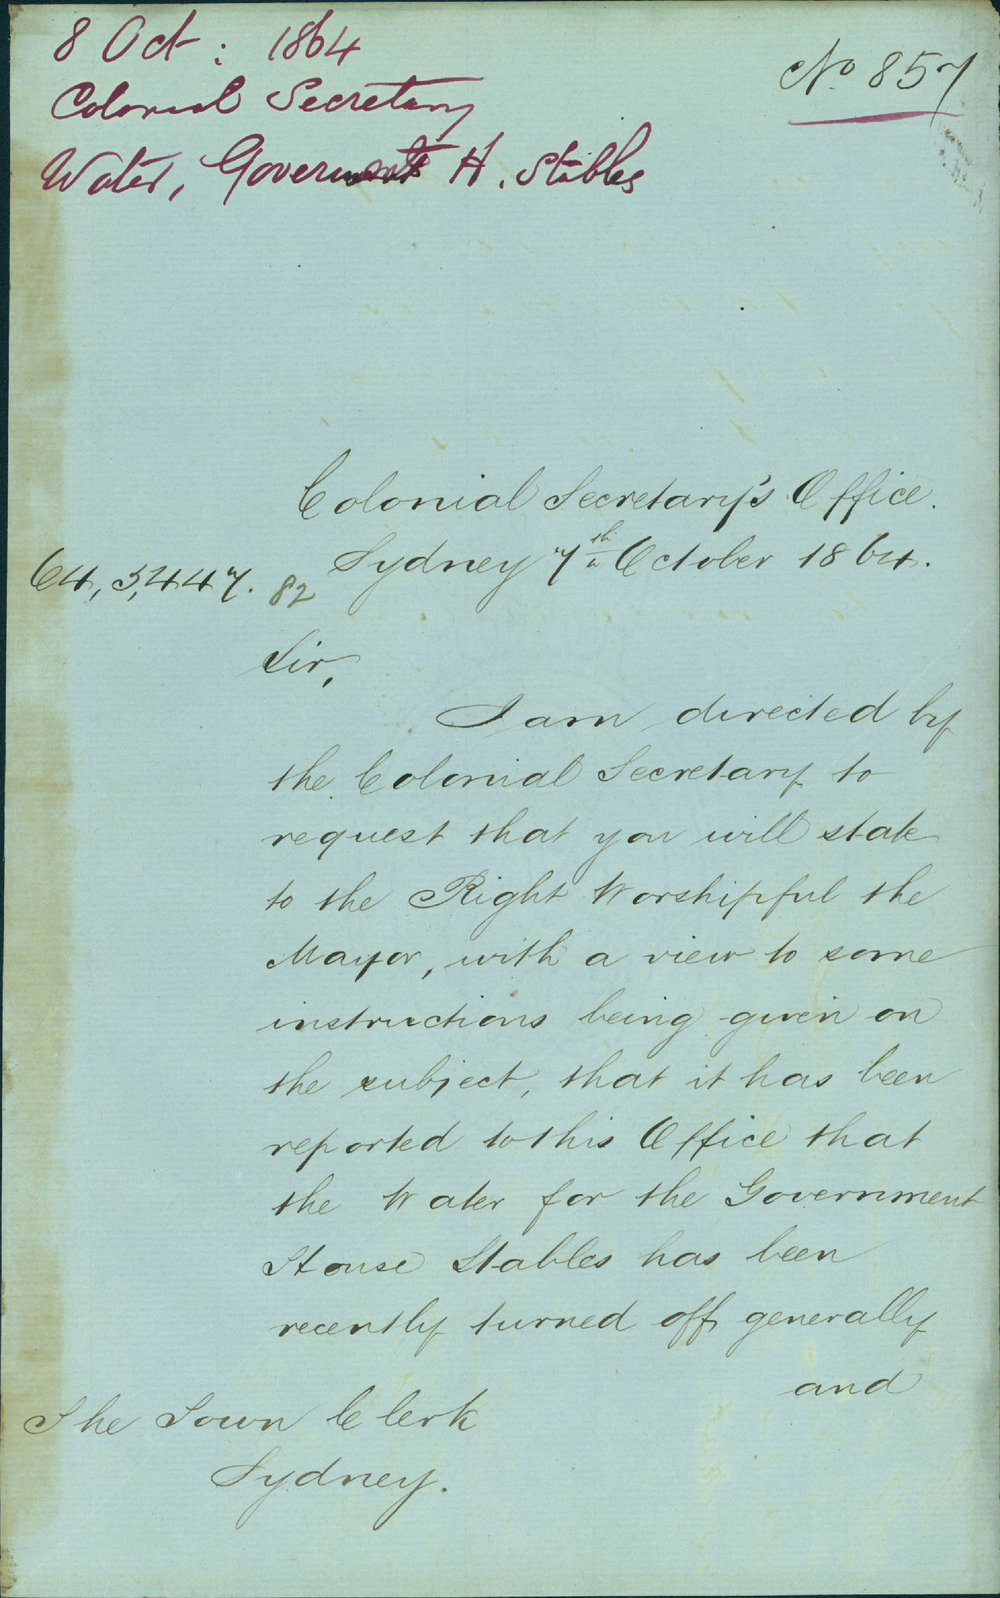 8 Oct : 1864
No 857
Colonial Secretary
Water, Government H. Stables
Colonial Secretary's Office.
Sydney 7th October 1864.
64,5,447. 82
Sir,
I am directed by
the Colonial Secretary to
request that you will state
to the Right Worshipful the
Mayor, with a view to some
instructions being given on
the subject, that it has been
reported to this Office that
the Water for the Government
House Stables has been
recently turned off generally
and
The Town Clerk
Sydney.